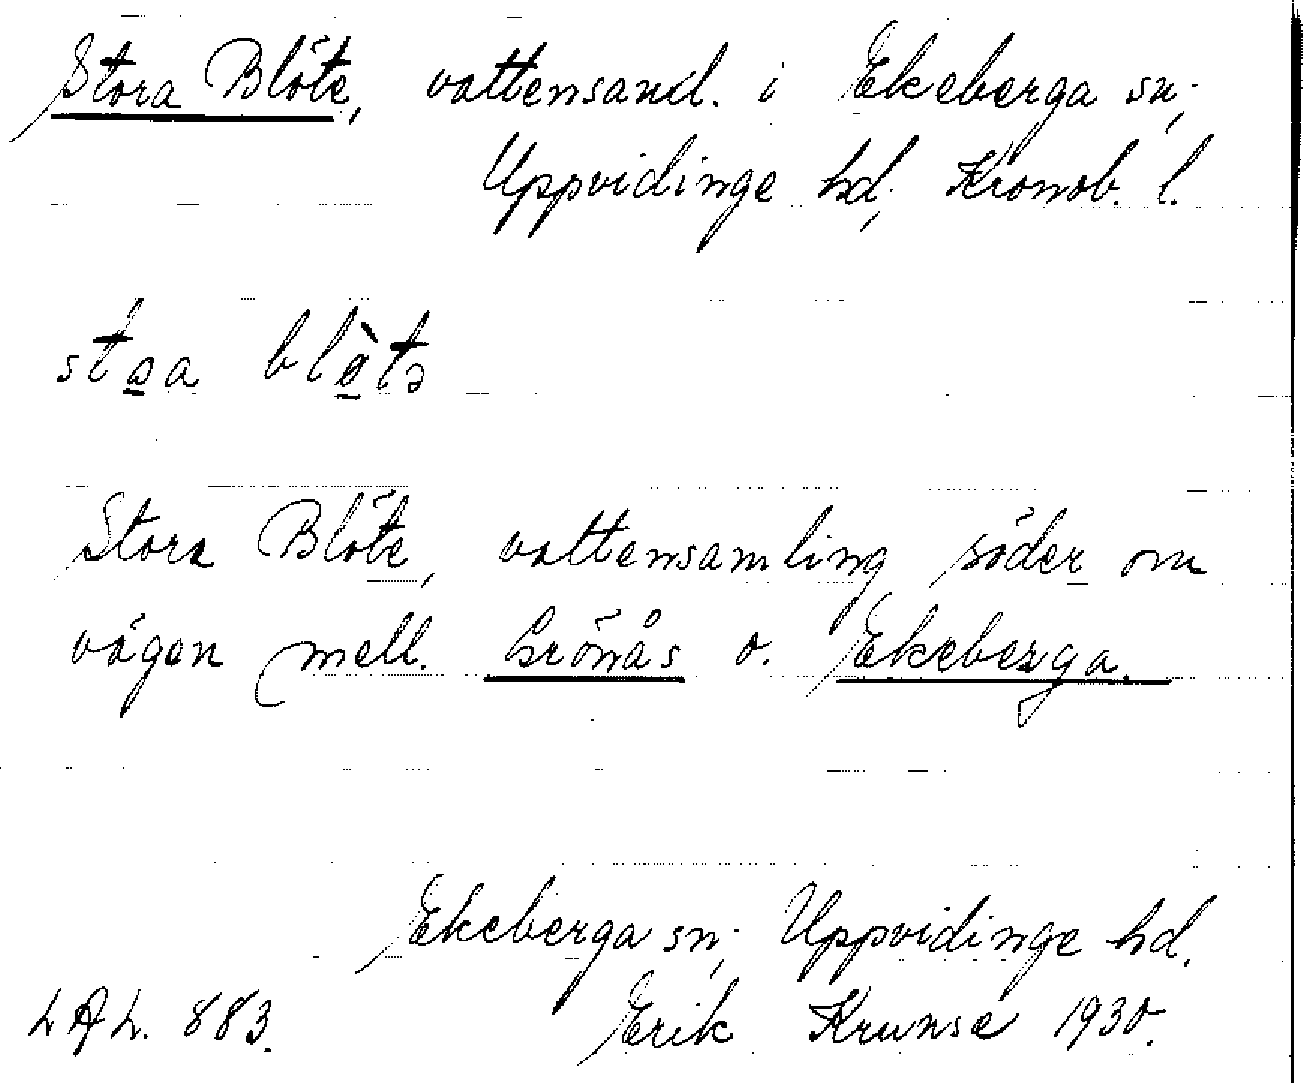 Stora Blöte, vattensaml. i Ekeberga sn,
Uppvidinge hd, Kronob. l.
Stora Blöte, vattensamling söder om
vägen mell. Grönås o. Ekeberga.
Ekeberga sn, Uppvidinge hd.
LAL. 883. Erik Krunse 1930.